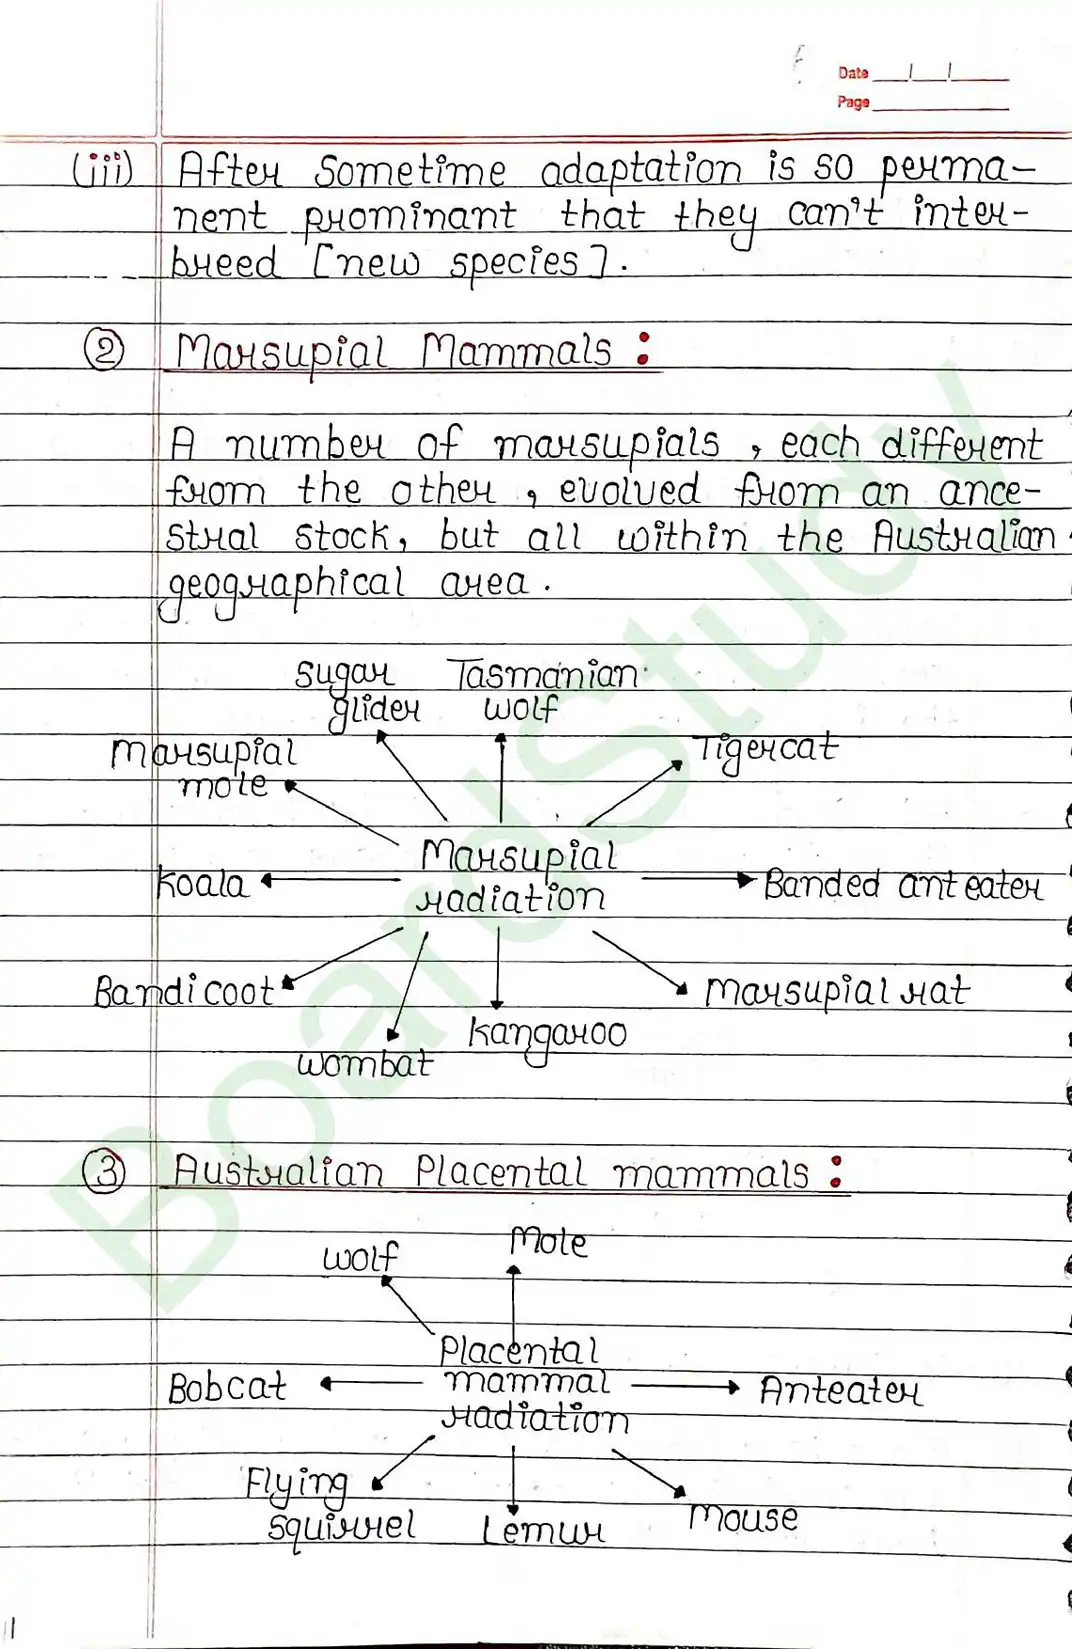 Date __/__/____
Page ________
(iii) After Sometime adaptation is so perma-
nent prominant that they can't inter-
breed [new species].
② Marsupial Mammals :
A number of marsupials, each different
from the other, evolved from an ance-
stral stock, but all within the Australian
geographical area.
Sugar glider
Tasmanian wolf
Marsupial mole
Tigercat
Marsupial radiation
Koala
Banded ant eater
Bandicoot
Marsupial rat
Kangaroo
Wombat
③ Australian Placental mammals :
Wolf
Mole
Placental mammal radiation
Bobcat
Anteater
Flying squirrel
Lemur
Mouse
BoardStudy